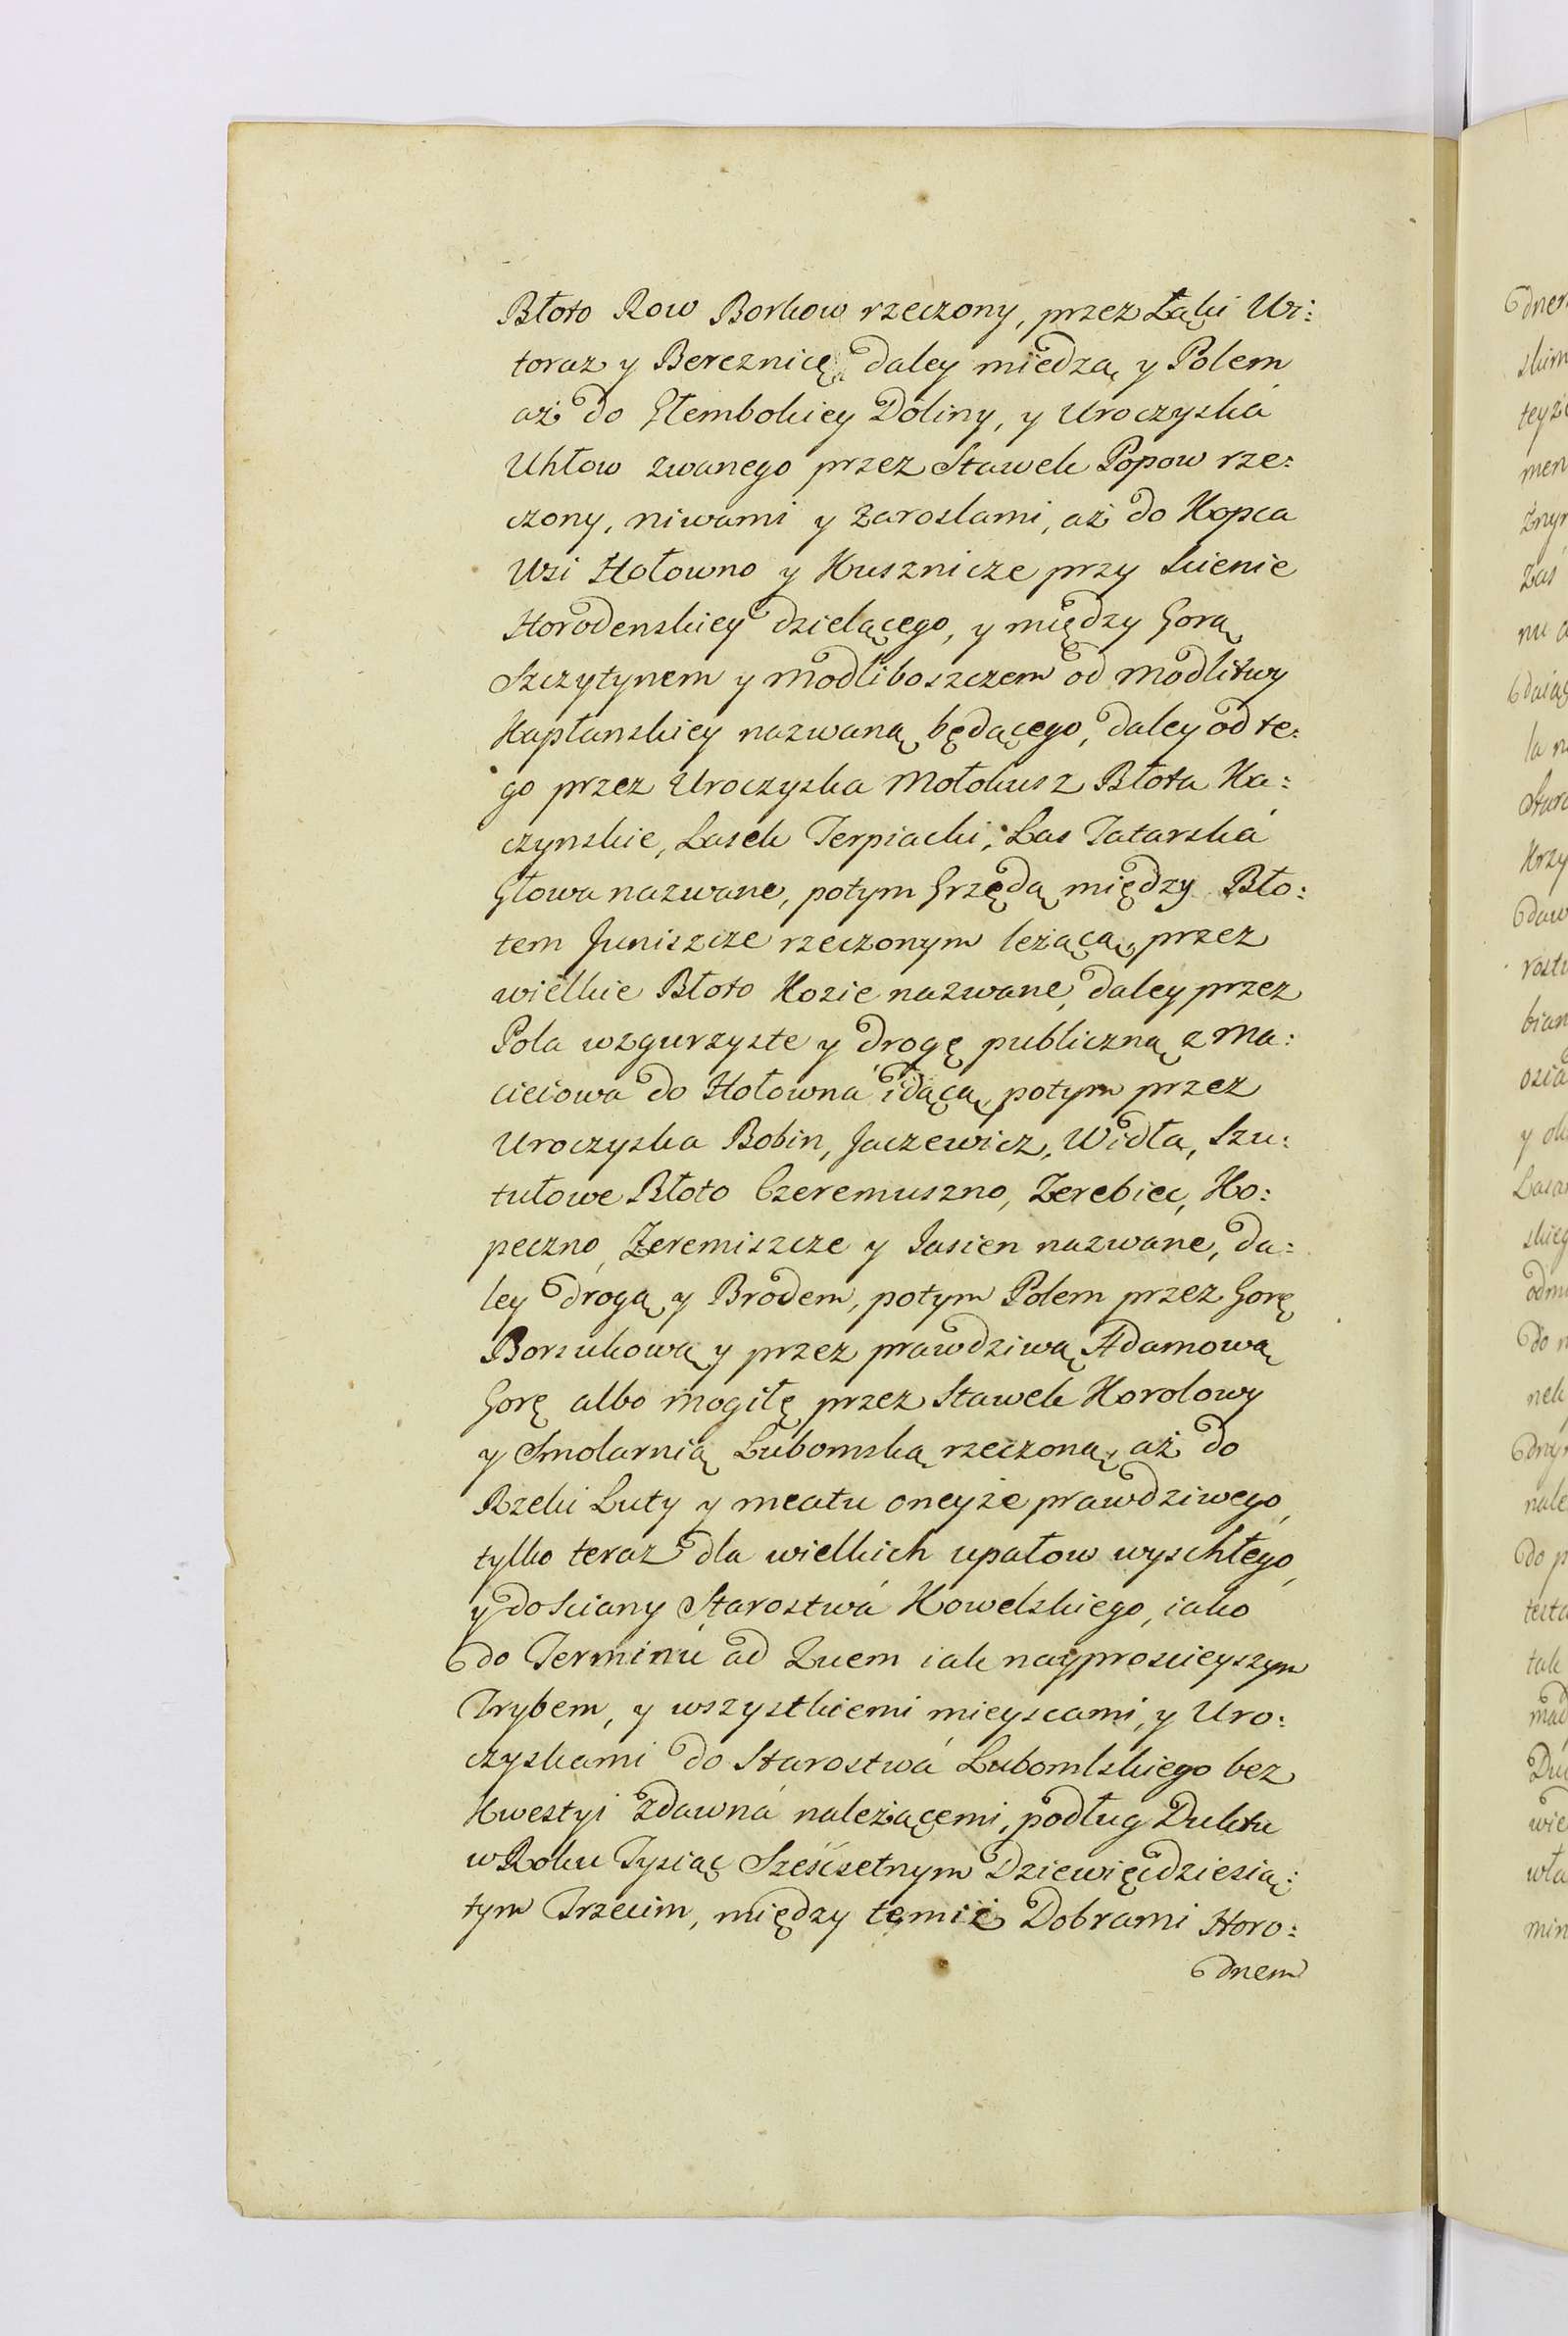 Błoto Row Borkow rzeczony, przez Łąki Wi:
toraz y Bereznicę daley miedzą y Polem
aż do Głembokiey Doliny, y Uroczyska
Uhłow zwanego przez Stawek Popow rze:
czony, niwami y zaroslami, aż do Kopca
Wsi Hołowno y Kusznicze przy Scienie
Horodenskiey dzielącego, y między Gorą
Szczytynem y Modliboszczem od modlitwy
Kapłanskiey nazwaną będącego, daley od te:
go przez Uroczyska Mołokusz Błota Ka:
czynskie, Lasek Terpiacki, Las Tatarská
Głowa nazwane, potym Grzędą między Bło:
tem Juniszcze rzeczonym leżącą, przez
wielkie Błoto Kozie nazwane, daley przez
Pola wzgurzyste y drogę publiczną z Ma:
cieiowa do Hołowná idącą, potym przez
Uroczyska Bobin, Jaczewicz, Widła, Szu:
tułowe Błoto Czeremuszno, Zerebiec, Ko:
peczno, Zeremiszcze y Jasien nazwane, da:
ley drogą y Brodem, potym Polem przez Gorę
Borsukową y przez prawdziwą Adamową
Gorę albo mogiłę przez Stawek Korolowy
y Smolarnią Lubomską rzeczoną, aż do
Rzeki Luty y meatu oneyże prawdziwego,
tylko teraz dla wielkich upałow wyschłego,
y do Sciany Starostwá Kowelskiego, iako
do Terminu ad Quem iak nayproscieyszym
Trybem, y wszystkiemi mieyscami, y Uro:
czyskami do Starostwá Lubomlskiego bez
Kwestyi zdawná należącemi, podług Duktu
w Roku Tysiąc Sześćsetnym Dziewięćdziesią:
tym Trzecim, między temiż Dobrami Horo:
dnem